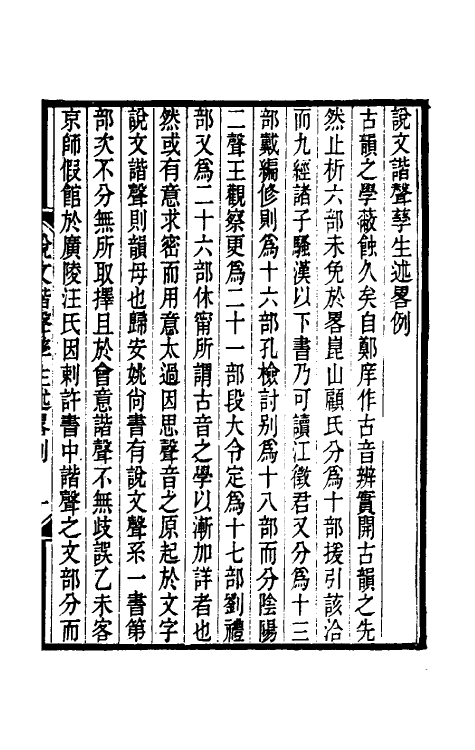 說文諧聲孳生述畧例
古韻之學蔽蝕久矣自鄭庠作古音辨實開古韻之先
然止析六部未免於畧崑山顧氏分爲十部援引該洽
而九經諸子騷漢以下書乃可讀江徵君又分爲十三
部戴編修則爲十六部孔檢討别爲十八部而分陰陽
二聲王觀察更爲二十一部段大令定爲十七部劉禮
部又爲二十六部休甯所謂古音之學以漸加詳者也
然或有意求密而用意太過因思聲音之原起於文字
說文諧聲則韻母也歸安姚尙書有說文聲系一書第
部次不分無所取擇且於會意諧聲不無歧誤乙未客
京師假館於廣陵汪氏因剌許書中諧聲之文部分而
說文諧聲孳生述畧例 一